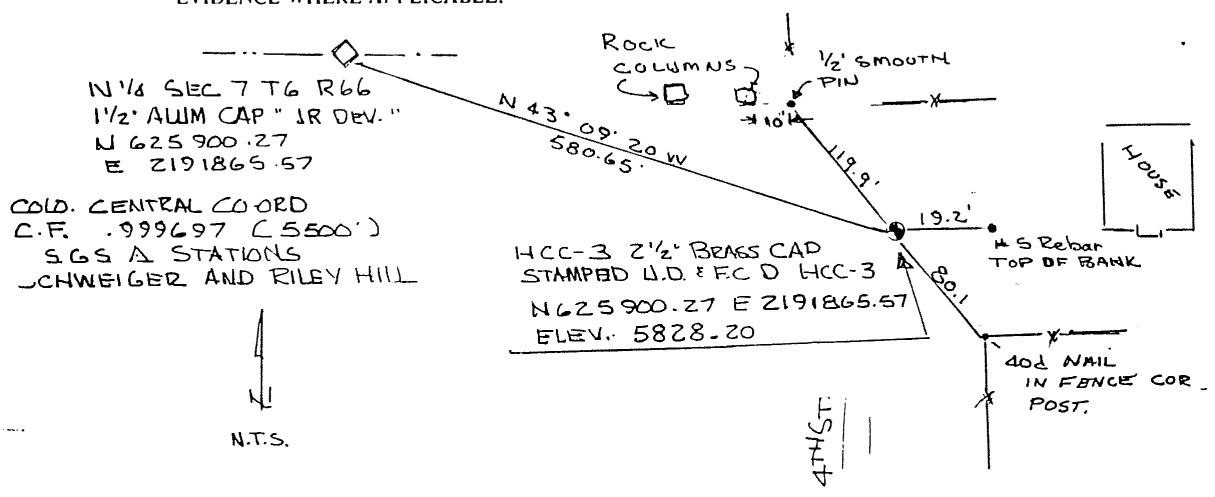 EVIDENCE WHERE APPLICABLE.
N 1/4 SEC 7 T6 R66
1 1/2" ALUM CAP "JR DEV."
N 625900.27
E 2191865.57
COLO. CENTRAL COORD
C.F. .999697 (5500')
SGS Δ STATIONS
SCHWEIGER AND RILEY HILL
N
N.T.S.
N 43° 09' 20 W
580.65'
ROCK
COLUMNS
1/2" SMOOTH
PIN
10'
119.9'
19.2'
# 5 Rebar
TOP OF BANK
HOUSE
HCC-3 2 1/2" BRASS CAD
STAMPED U.D. & F.C D HCC-3
N625900.27 E 2191865.57
ELEV. 5828.20
80.1
40d NAIL
IN FENCE COR
POST.
4TH ST.